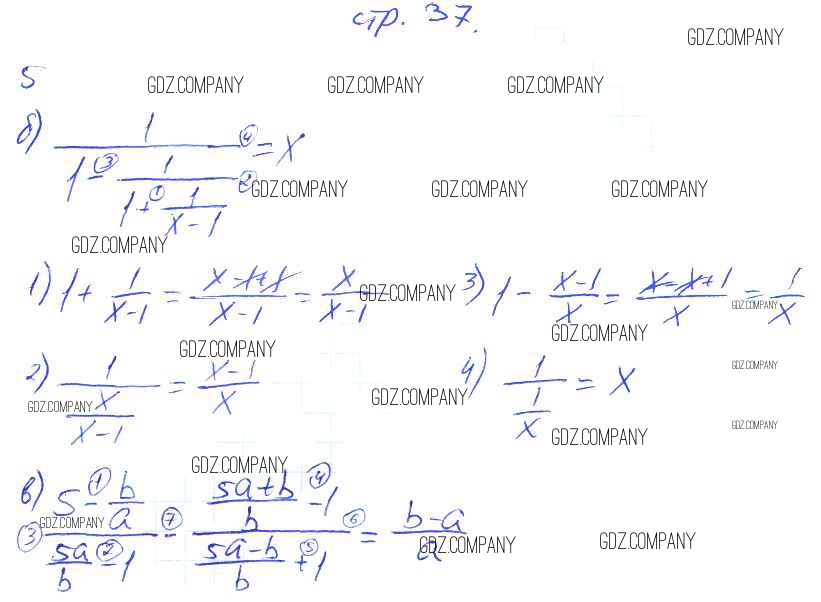 стр. 37.
GDZ.COMPANY
5
GDZ.COMPANY GDZ.COMPANY GDZ.COMPANY
б) 1 / (1 -③ 1 / (1 +① 1/(x-1)) ②) ④ = x
GDZ.COMPANY GDZ.COMPANY GDZ.COMPANY
GDZ.COMPANY
1) 1 + 1/(x-1) = (x-1+1)/(x-1) = x/(x-1)
GDZ.COMPANY
3) 1 - (x-1)/x = (x-x+1)/x = 1/x
GDZ.COMPANY
GDZ.COMPANY
GDZ.COMPANY
2) 1 / (x/(x-1)) = (x-1)/x
GDZ.COMPANY
4) 1 / (1/x) = x
GDZ.COMPANY
GDZ.COMPANY
GDZ.COMPANY
GDZ.COMPANY
GDZ.COMPANY
в) (5 -① b/a) / (5a/b -② 1) ③ -⑦ ((5a+b)/b -④ 1) / ((5a-b)/b +⑤ 1) ⑥ = (b-a)/a
GDZ.COMPANY GDZ.COMPANY GDZ.COMPANY